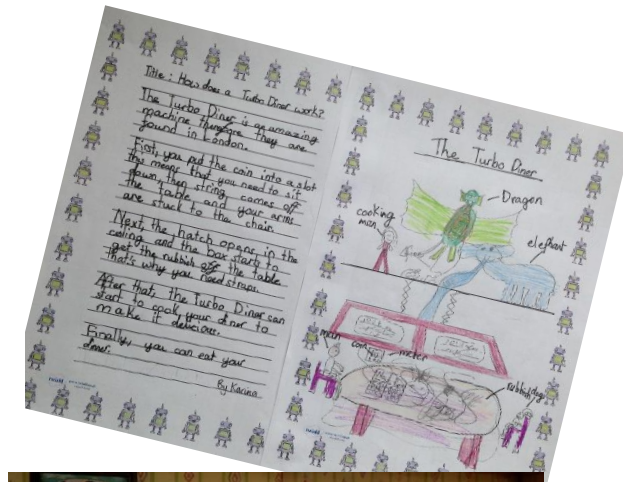 Title: How does a Turbo Diner work?
The Turbo Diner is an amazing
machine therefore they are
found in London.
First, you put the coin into a slot
this means that you need to sit
down then string comes off
the table and your arms
are stuck to the chair.
Next, the hatch opens in the
celing and the box starts to
get the rubbish off the table
that's why you need straps.
After that, the Turbo Diner can
start to cook your diner to
make it
Finally, you can eat your
diner.
By Karina
twinkl
The Turbo Diner
Dragon
cooking
man
elephant
man
coin
meter
rubbish
dog
twinkl